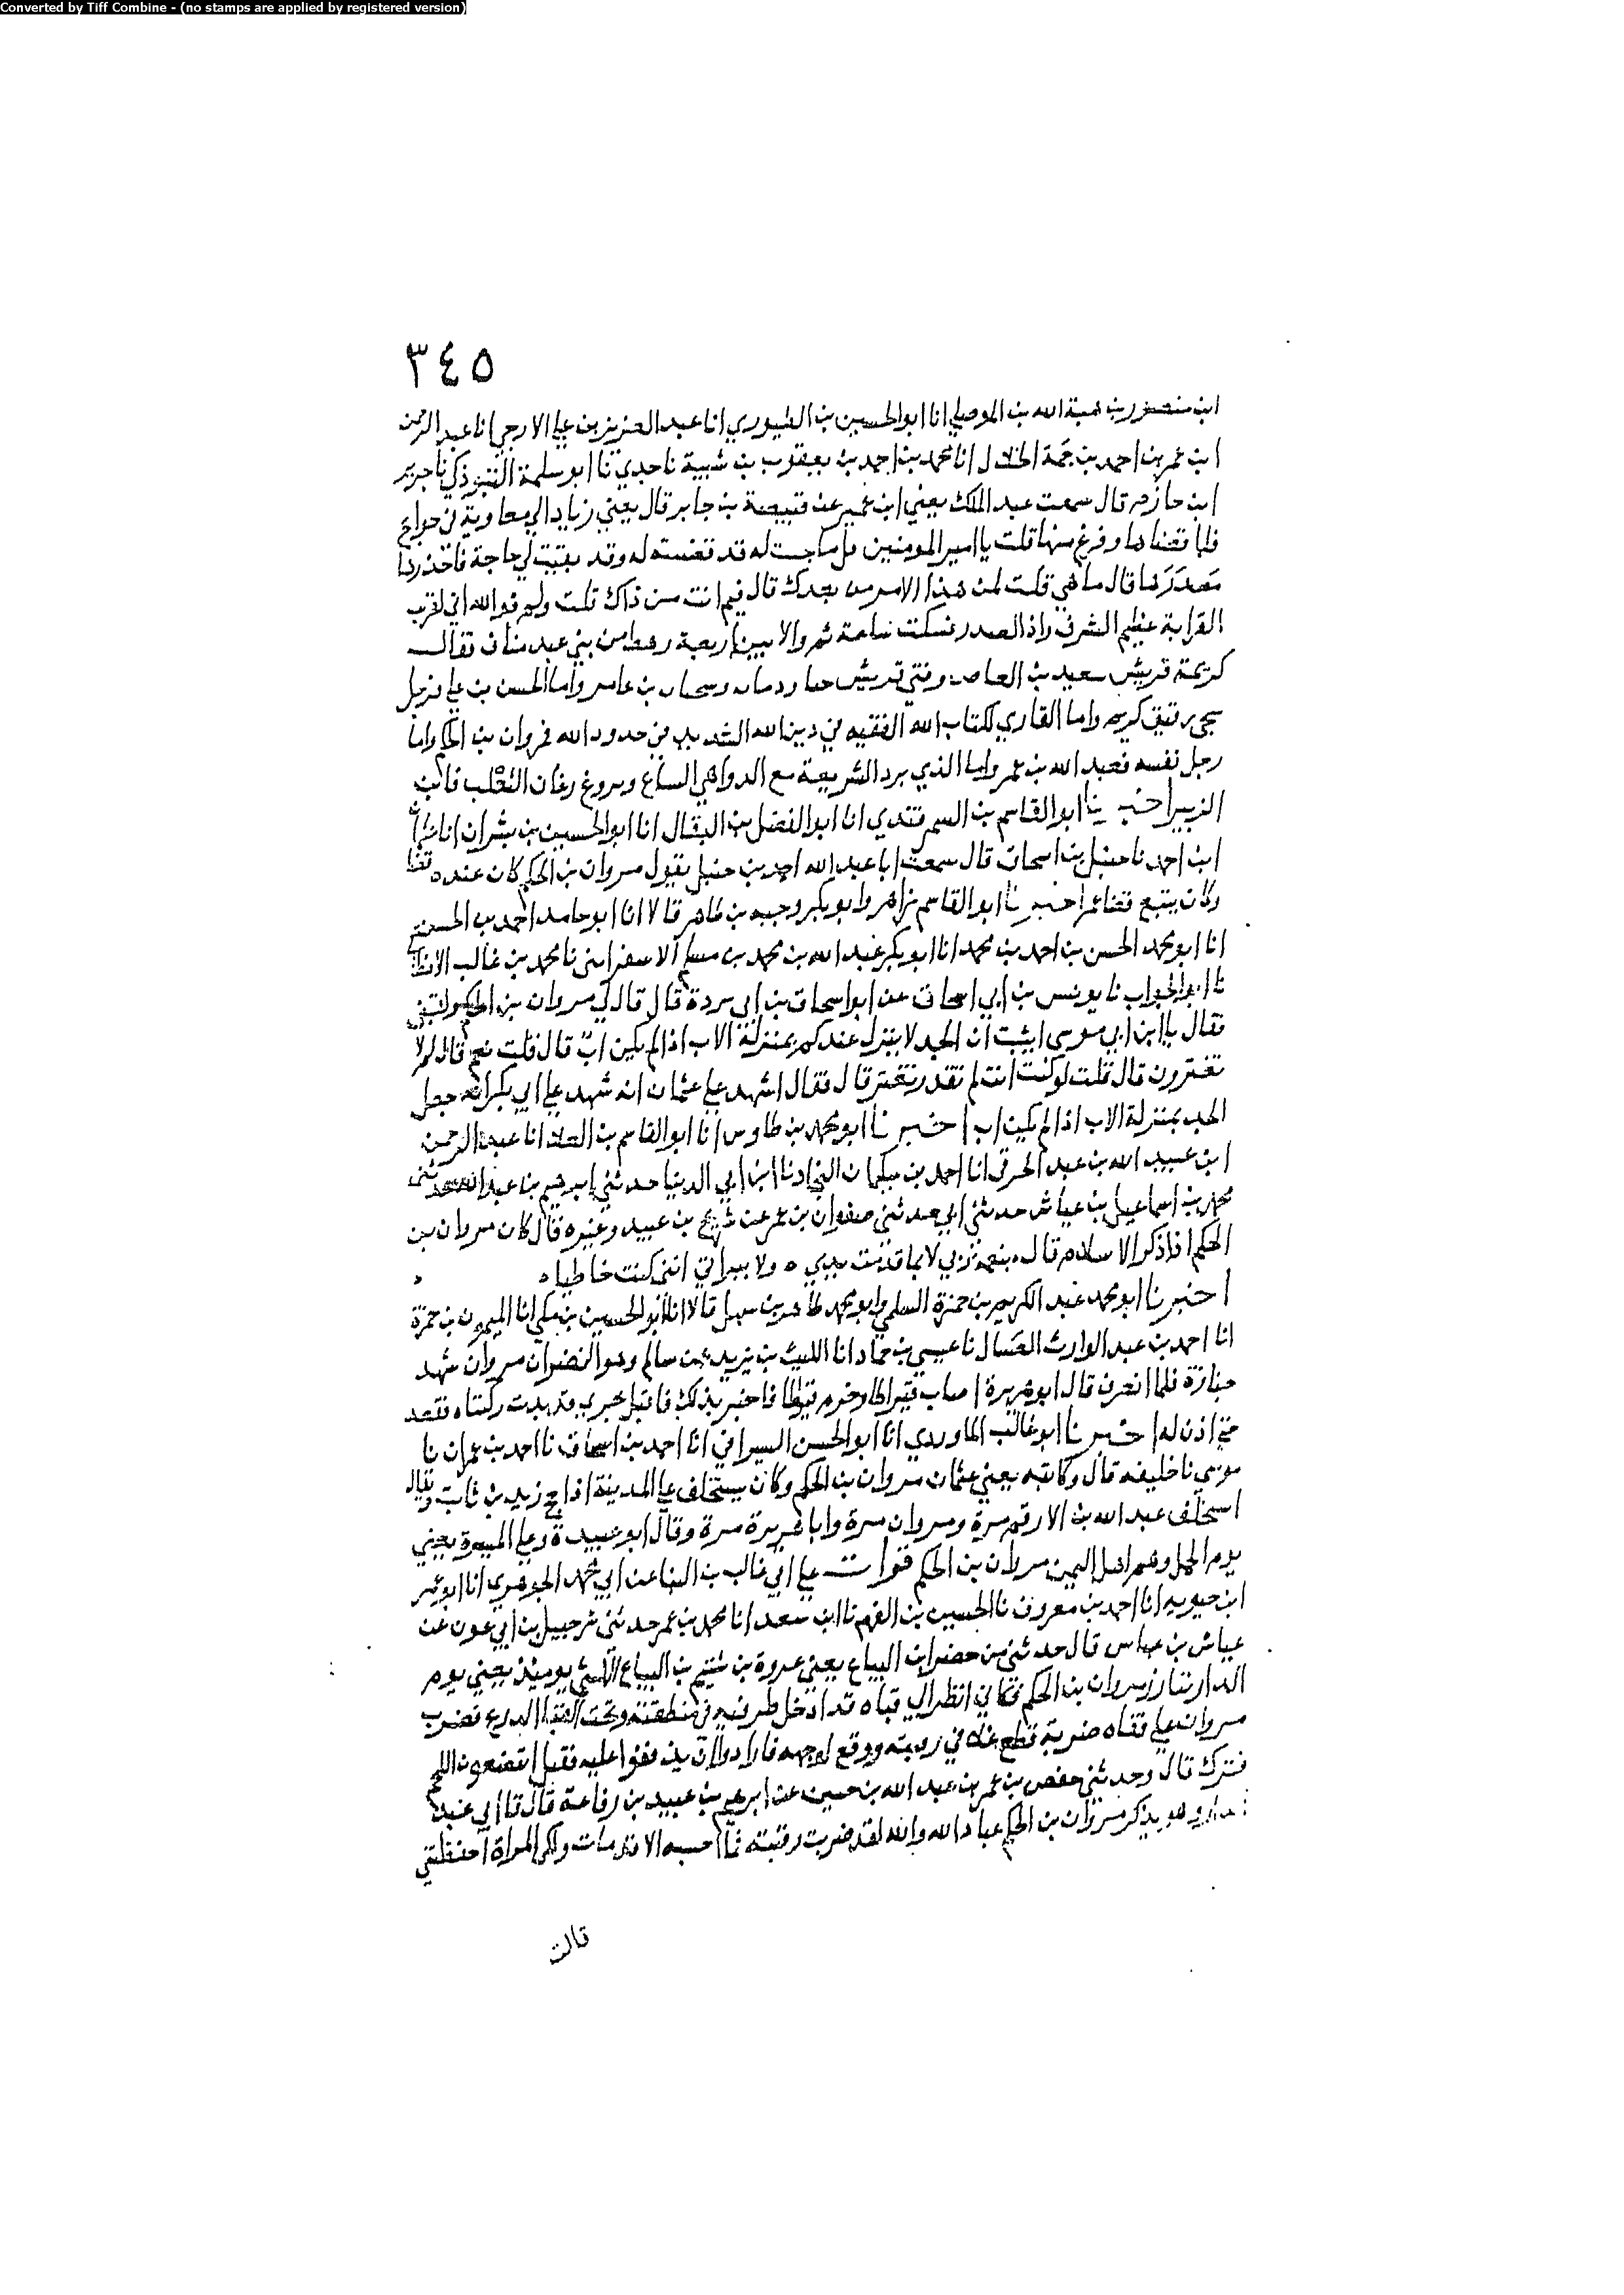 Converted by Tiff Combine - (no stamps are applied by registered version)
٣٤٥
ابن منصور بن هبة الله بن الموصلي انا ابو الحسين بن الطيوري انا عبد العزيز بن علي الازجي انا عبد الرحمن
ابن عمر بن احمد بن حمة الخلال انا محمد بن احمد بن يعقوب بن شيبة نا جدي نا ابو سلمة التبوذكي نا جرير
ابن حازم قال سمعت عبد الملك يعني ابن عمير عن قبيصة بن جابر قال بعثني زياد الى معاوية في حوايج
فلما قضاها وفرغ منها قلت يا امير المومنين كل ما جيت له قد قضيته له وقد بقيت لي حاجة فاخذرها
مصدرها قال ما هي قلت لمن هذا الامر من بعدك قال فيم انت من ذاك قلت ولم فوالله اني لقريب
القرابة عظيم الشرف واد الصدر فسكت ساعة ثم والا بين اربعة رهط من بني عبد مناف فقال
كريمة قريش سعيد بن العاص وفتى قريش حيا ودماء وسخاء بن عامر واما الحسن بن علي فرجل
سخي رقيق كريم واما القاري لكتاب الله الفقيه في دين الله الشديد في حدود الله فمروان بن الحكم واما
رجل نفسه فعبد الله بن عمر واما الذي يرد الشريعة مع الدواهي السباع ويروغ روغان الثعلب فابن
الزبير اخبرنا ابو القاسم بن السمرقندي انا ابو الفضل بن البقال انا ابو الحسين بن بشران انا عثمان
ابن احمد نا حنبل بن اسحاق قال سمعت ابا عبد الله احمد بن حنبل يقول مروان بن الحكم كان عنده قضا
وكان يتبع قضا عمر اخبرنا ابو القاسم زاهر وابو بكر وجيه بن طاهر قالا انا ابو حامد احمد بن الحسن
انا ابو محمد الحسن بن احمد بن محمد انا ابو بكر عبد الله بن محمد بن مسلم الاسفرايني نا محمد بن غالب الانطاكي
نا ابو الجواب نا يونس بن ابي اسحاق عن ابو اسحاق بن ابي بردة قال قال لي مروان بن الحكم ولقيني
فقال يا ابن ابي موسى ابيت ان الجد لا ينزل عندكم بمنزلة الاب اذا لم يكن اب قال قلت نعم قال لم لا
تغيرون قال قلت لو كنت انت لم تقدر تغير قال فقال اشهد على عثمان انه شهد على ابي بكر انه جعل
الجد بمنزلة الاب اذا لم يكن اب اخبرنا ابو محمد بن طاوس انا ابو القاسم بن العلا انا عبد الرحمن
ابن عبيد الله بن عبد الحرفي انا احمد بن سلمان النجاد نا ابن ابي الدنيا حدثني ابرهيم بن عبد الله حدثني
محمد بن اسماعيل بن عياش حدثني ابي حدثني صفوان بن عمر عن شريح بن عبيد وغيره قال كان مروان بن
الحكم اذا ذكر الاسلام قال بنعمة ربي لا بما قدمت يدي ه ولا ببراتي انني كنت خاطيا ه
اخبرنا ابو محمد عبد الكريم بن حمزة السلمي وابو محمد طاهر بن سهل قالا انا ابو الحسين بن مكي انا الميمون بن حمزة
انا احمد بن عبد الوارث العسال نا عيسى بن حماد انا الليث بن يزيد عن سالم وهو ابو النضر ان مروان شهد
جنازة فلما انصرف قال ابو هريرة اصاب قيراطا وحرم قيراطا فاخبر بذلك فاقبل يجري قد بدت ركبتاه فقعد
حتى اذن له اخبرنا ابو غالب الماوردي انا ابو الحسن السيرافي انا احمد بن اسحاق نا احمد بن عمران نا
موسى نا خليفه قال وكاتبه يعني عثمان مروان بن الحكم وكان يستخلف على المدينة اذا حج زيد بن ثابت ويقال
استخلف عبد الله بن الارقم مرة ومروان مرة وابا هريرة مرة وقال ابو عبيدة وعلى الميسرة يعني
يوم الجمل وهم اهل اليمن مروان بن الحكم قرات على ابي غالب بن البنا عن ابي محمد الجوهري انا ابو عمر
ابن حيويه انا احمد بن معروف نا الحسين بن الفهم نا ابن سعد انا محمد بن عمر حدثني شرحبيل بن ابي عون عن
عياش بن عباس قال حدثني من حضر ابن البياع يعني عروة بن شييم بن البياع الليثي يوميذ يعني يوم
الدار يبارز مروان بن الحكم فكاني انظر الى قباه قد ادخل طرفيه في منطقته وتحت القبا الدرع فضرب
مروان على قفاه ضربة قطع علابي رقبته ووقع لوجهه فارادوا ان يذففوا عليه فقيل اتبضعون اللحم
فترك قال وحدثني حفص بن عمر بن عبد الله بن حسين عن ابرهيم بن عبيد بن رفاعة قال قال ابي عبيد
وهو يذكر مروان بن الحكم عباد الله والله لقد ضربت رقبته فما احسبه الا قد مات ولكن المراة احفظتني
قالت